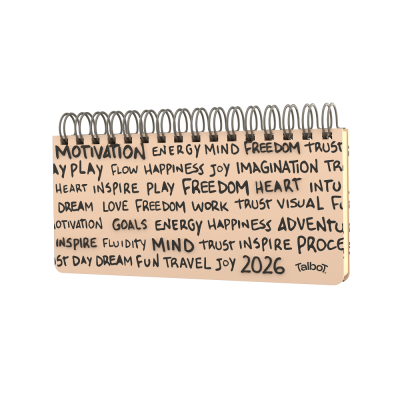 MOTIVATION ENERGY MIND FREEDOM TRUST
AY PLAY FLOW HAPPINESS JOY IMAGINATION TR
HEART INSPIRE PLAY FREEDOM HEART INTU
DREAM LOVE FREEDOM WORK TRUST VISUAL FU
OTIVATION GOALS ENERGY HAPPINESS ADVENTU
INSPIRE FLUIDITY MIND TRUST INSPIRE PROCE
ST DAY DREAM FUN TRAVEL JOY 2026 TalboT